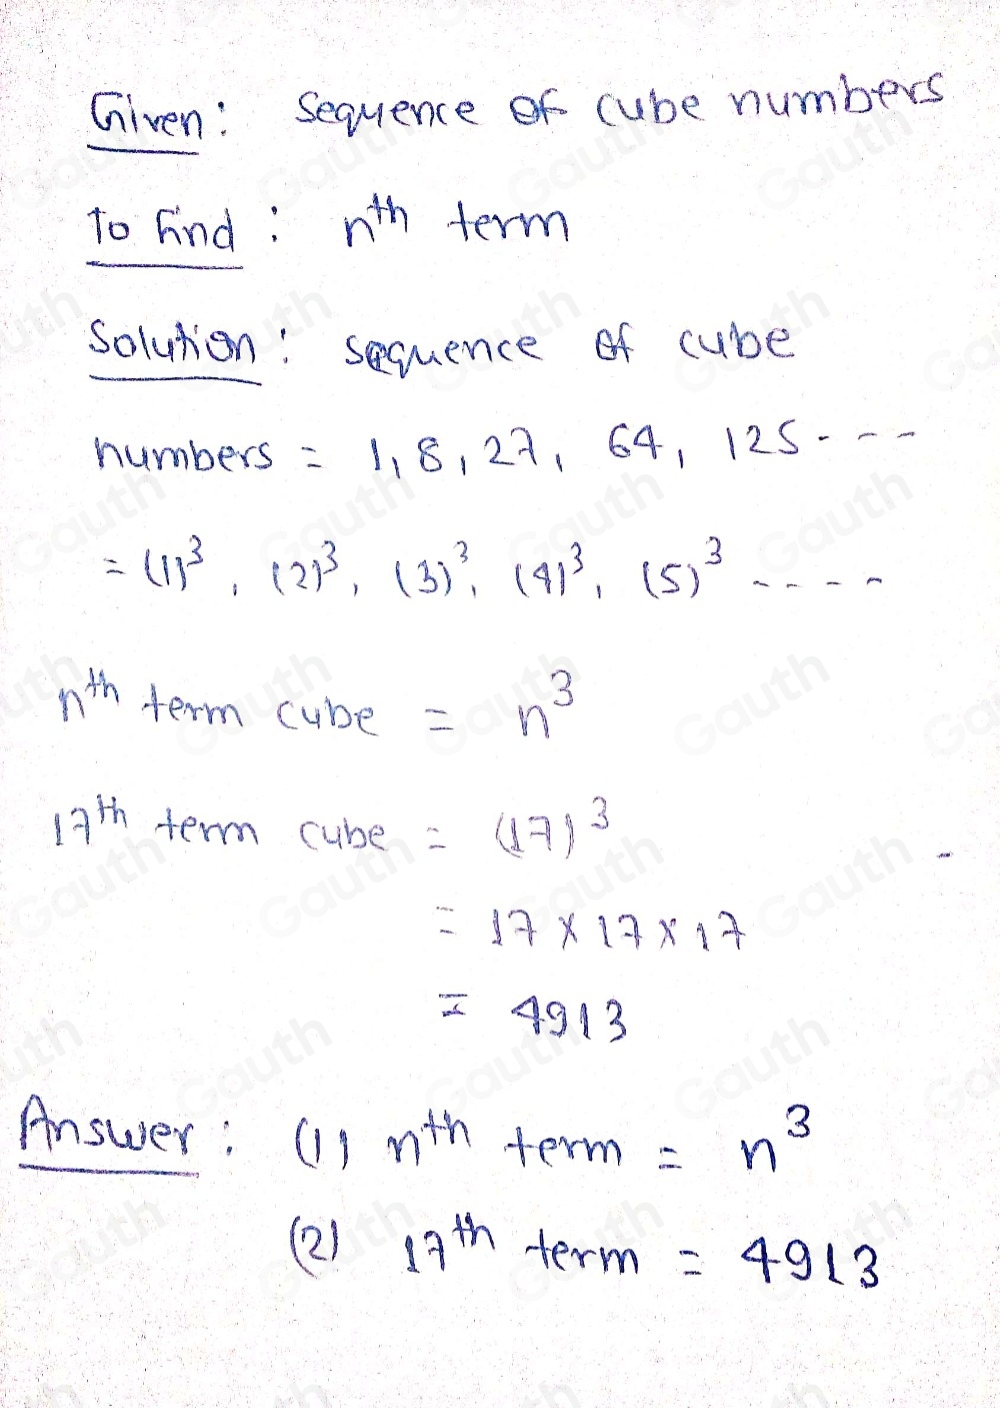 Given: Sequence of cube numbers
To find: nth term
Solution: sequence of cube
numbers = 1, 8, 27, 64, 125 - - -
= (1)³, (2)³, (3)³, (4)³, (5)³ - - - -
nth term cube = n³
17th term cube = (17)³
= 17 × 17 × 17
= 4913
Answer: (1) nth term = n³
(2) 17th term = 4913